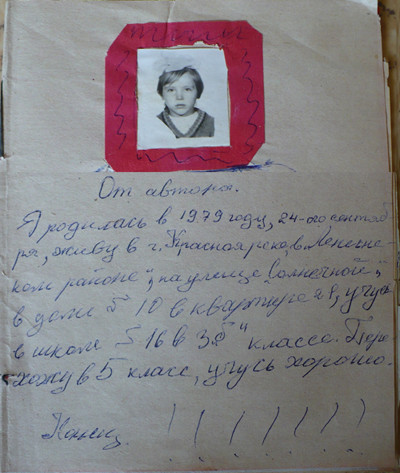 От автора.
Я родилась в 1979 году, 24-ого сентяб
ря, живу в г. Красноярске, в Ленинс-
ком районе, на улице Солнечной,
в доме 10 в квартире учусь
в школе 16 в 3 классе. Пере
хожу в 5 класс, учусь хорошо.
Конец. ! ! ! ! ! ! !